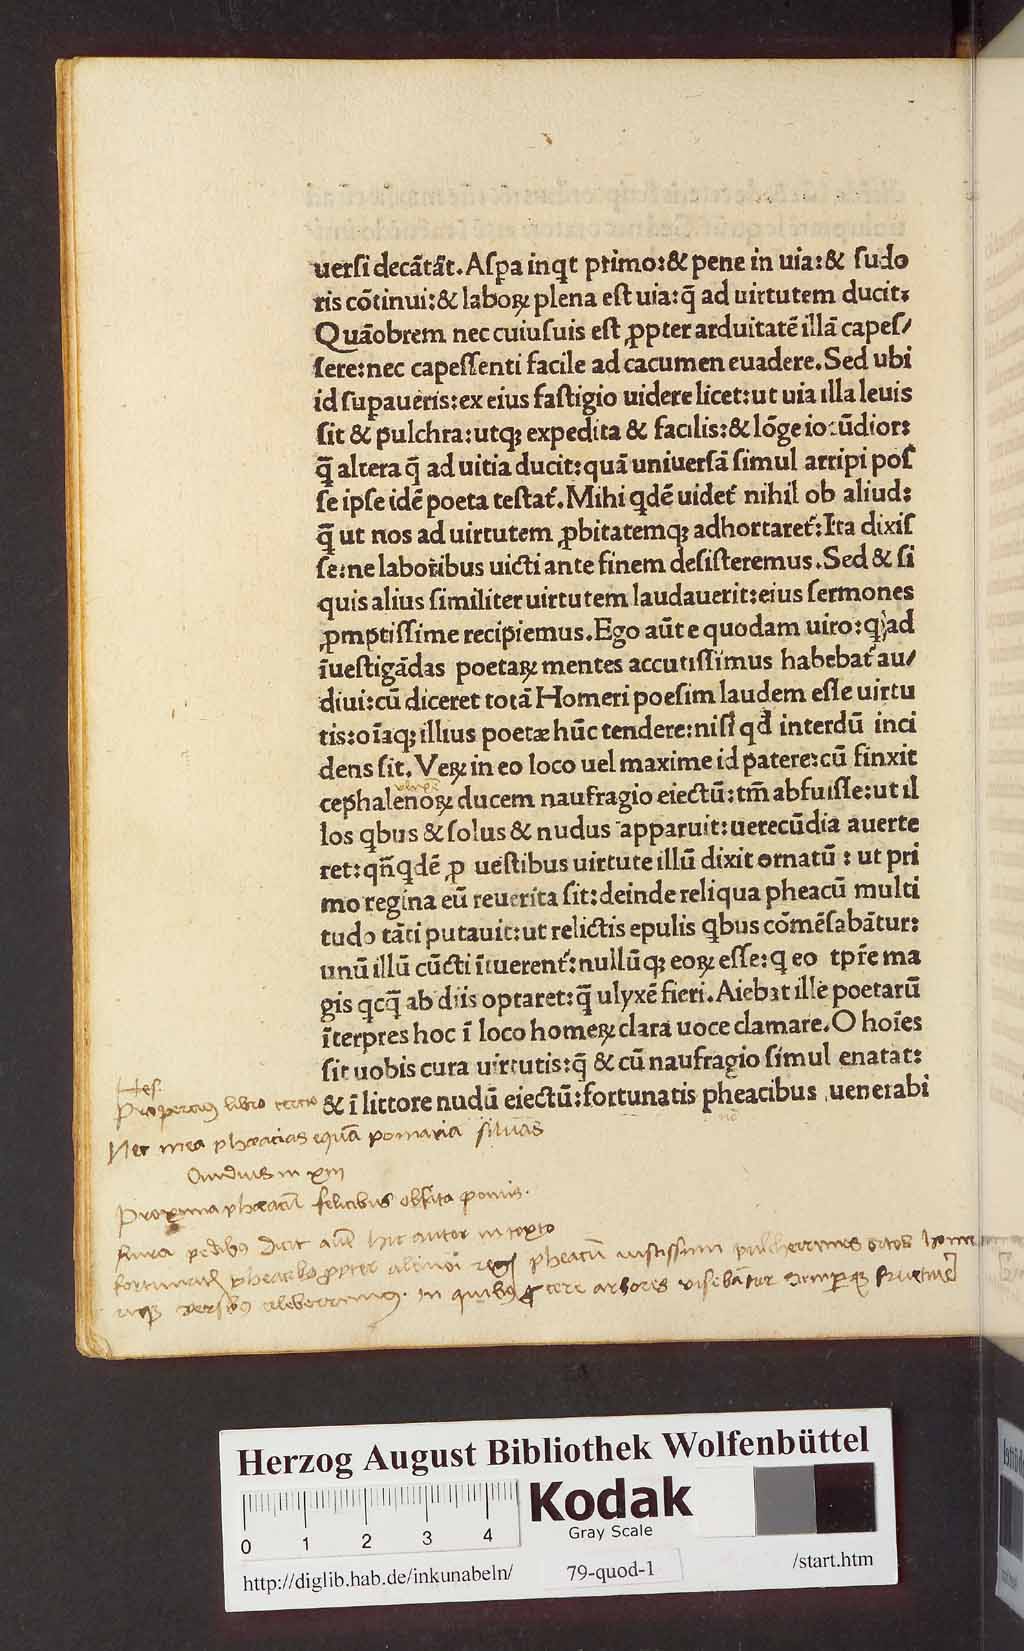 uersi decãtãt. Aspa inqt primo: & pene in uia: & sudo
ris cõtinui: & laboꝝ plena est uia: q̃ ad uirtutem ducit:
Quãobrem nec cuiusuis est ꝓpter arduitatẽ illã capes/
sere: nec capessenti facile ad cacumen euadere. Sed ubi
id supaueris: ex eius fastigio uidere licet: ut uia illa leuis
sit & pulchra: utq; expedita & facilis: & lõge iocũdior:
q̃ altera q̃ ad uitia ducit: quã uniuersã simul arripi pos
se ipse idẽ poeta testat̃. Mihi qdẽ uidet̃ nihil ob aliud:
q̃ ut nos ad uirtutem ꝓbitatemq; adhortaret̃: Ita dixis
se: ne laboribus uicti ante finem desisteremus. Sed & si
quis alius similiter uirtutem laudauerit: eius sermones
ꝓmptissime recipiemus. Ego aũt e quodam uiro: q ad
ĩuestigãdas poetaꝝ mentes accutissimus habebat̃ au/
diui: cũ diceret totã Homeri poesim laudem esse uirtu
tis: oĩaq; illius poetæ hũc tendere: nisi qd interdũ inci
dens sit. Veꝝ in eo loco uel maxime id patere: cũ finxit
cephalenoꝝ ducem naufragio eiectũ: tm̃ abfuisse: ut il
los qbus & solus & nudus apparuit: uerecũdia auerte
ret: qñqdẽ ꝓ uestibus uirtute illũ dixit ornatũ: ut pri
mo regina eũ reuerita sit: deinde reliqua pheacũ multi
tudo tãti putauit: ut relictis epulis qbus cõmẽsabãtur:
unũ illũ cũcti ĩtuerent̃: nullũq; eoꝝ esse: q eo tpr̃e ma
gis qcq̃ ab diis optaret: q̃ ulyxẽ fieri. Aiebat ille poetarũ
ĩterpres hoc ĩ loco homeꝝ clara uoce clamare. O hoĩes
sit uobis cura uirtutis: q̃ & cũ naufragio simul enatat:
& ĩ littore nudũ eiectũ: fortunatis pheacibus uenerabi
Hes.
Propercius libro tertio
Nec mea phæacias equãt pomaria siluas
Ouidius in xiii
Proxima phæacũ felicibus obsita pomis.
rura pedibus Dicit aũt hic autor in texto
pheacibus ꝓpter alcinoi regis pheacũ pulcherrimos ortos home
versibus celeberrimos. In quibus arbores visebãtur
Herzog August Bibliothek Wolfenbüttel
0 1 2 3 4
Kodak
Gray Scale
http://diglib.hab.de/inkunabeln/ 79-quod-1 /start.htm